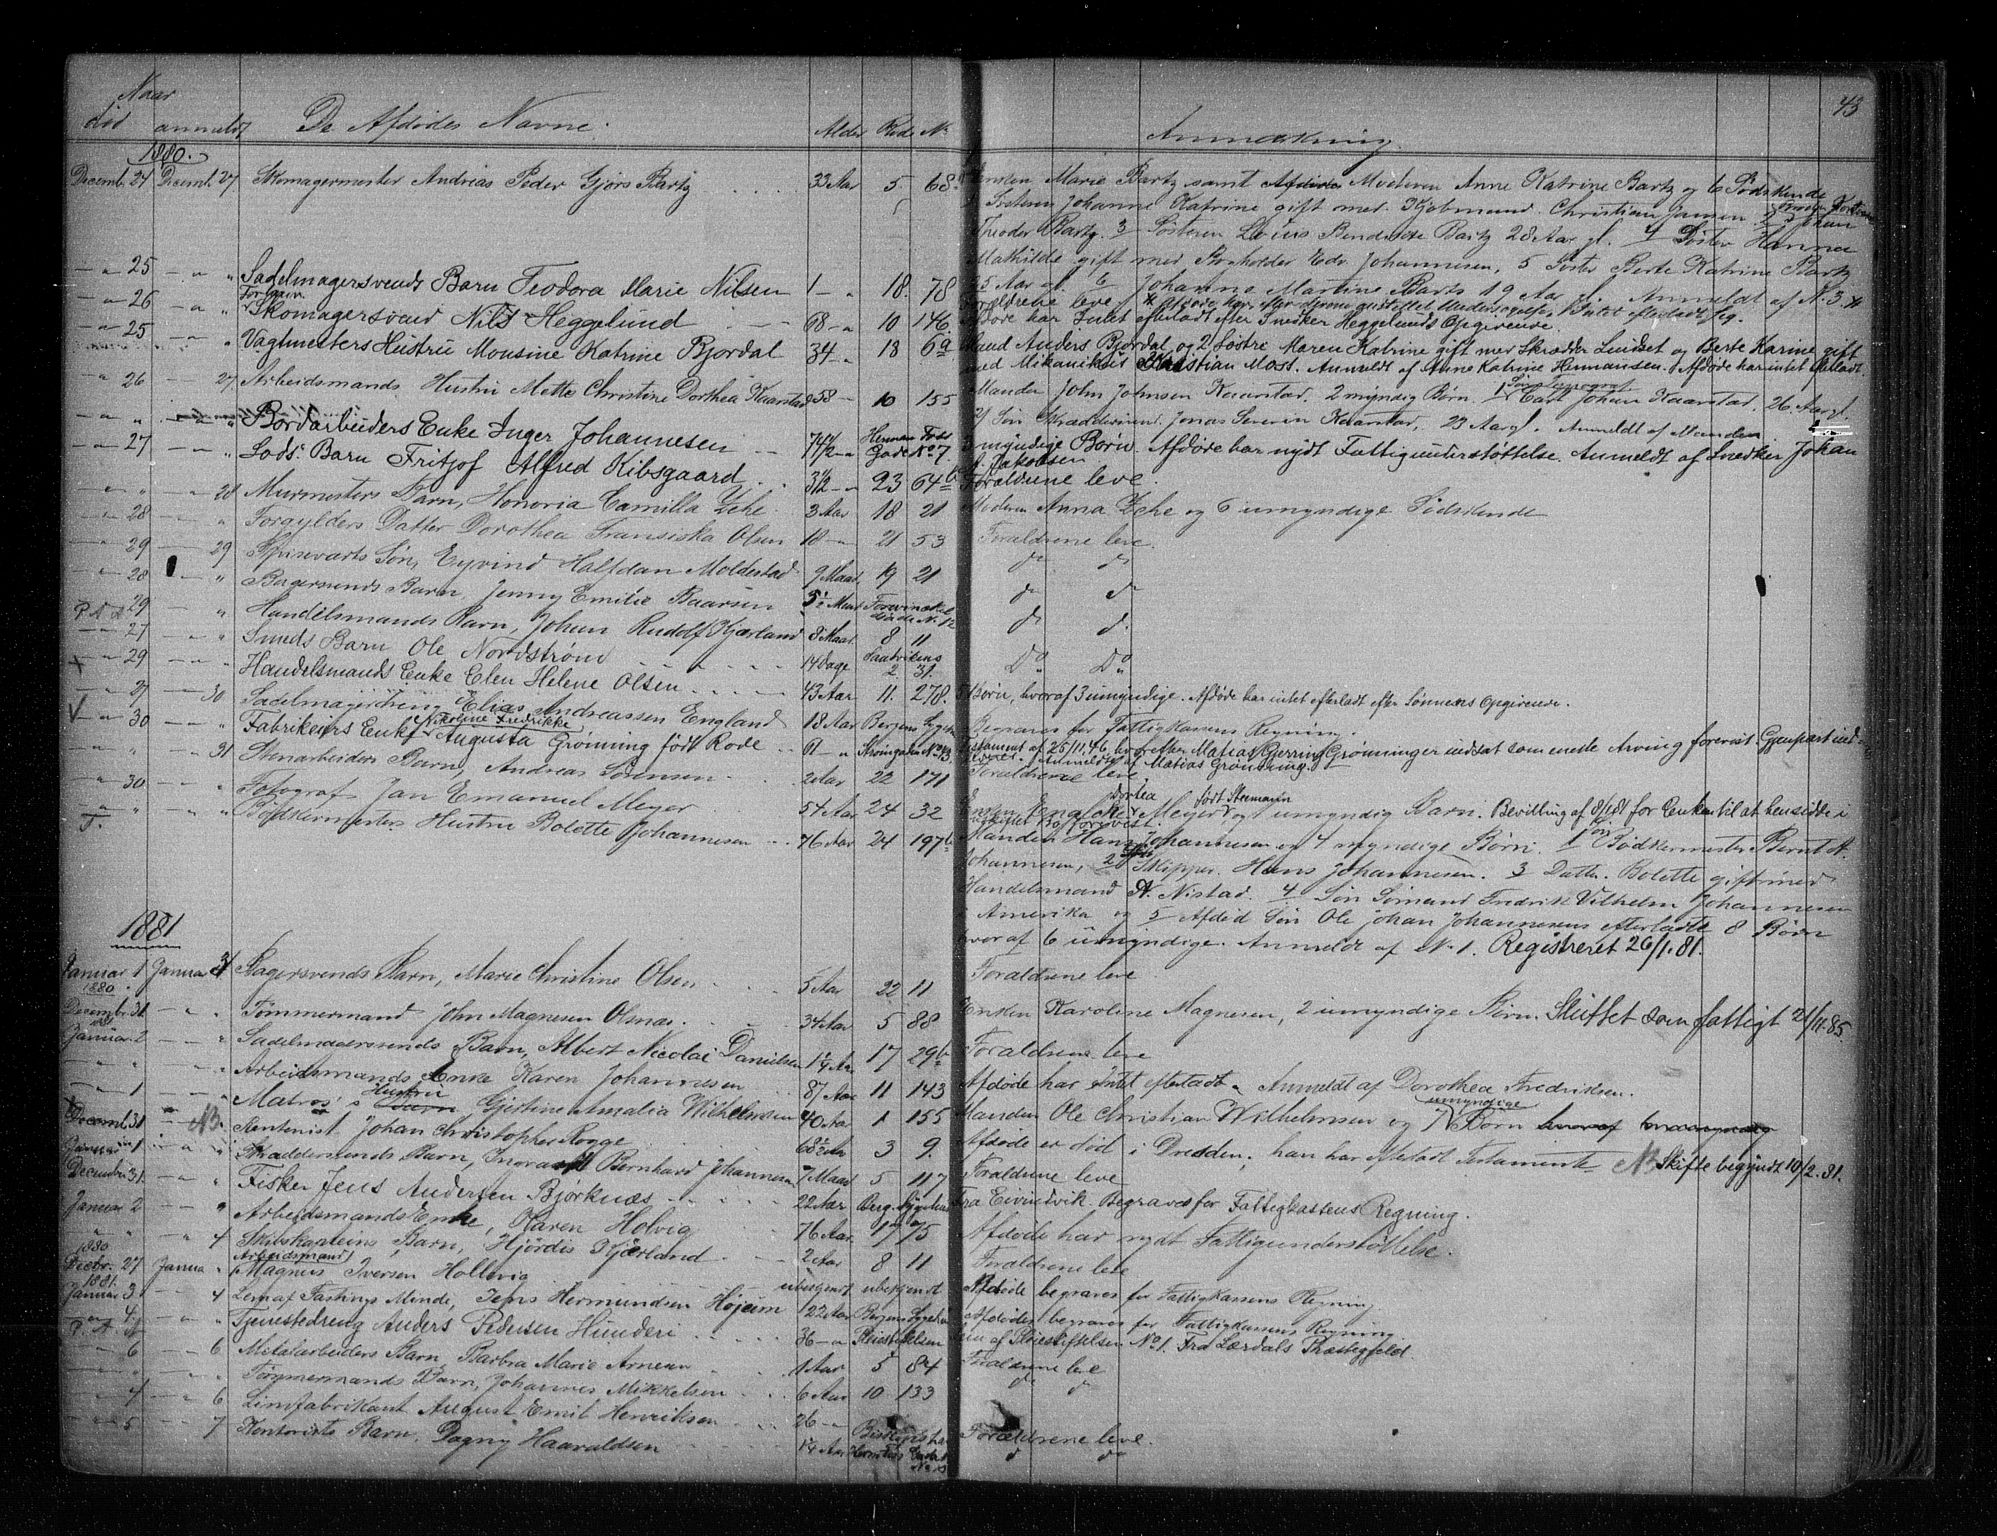 43
Naar
død anmeldt De Afdødes Navne. Alder Rode No Anmærkning
1880.
Decemb. 24 Decemb. 27 Skomagermester Andreas Peder Gjørs Bartz 33 Aar 5 68 Enken Marie Bartz samt Afdødes Moderen Anne Katrine Bartz og 6 Sødskende
Søsteren Johanne Katrine gift med Kjøbmand Christian Jansen 2 Broder Johan
Theodor Bartz. 3 Søsteren Lovis Bendikte Bartz 28 Aar gl. 4 Søster Hanna
Mathilde gift med Edv. Johannesen, 5 Søster Berte Katrine Bartz
25 Aar gl. 6 Johanne Martine Bartz 19 Aar gl. Anmeldt af N. 3.
— " 25 — " " Sadelmagersvends Barn Teodora Marie Nilsen 1 — " 18. 78 Forældrene leve
— " 26 — " " Forhen Skomagersvend Nils Heggelund 68 — " 10 146 Afdøde har Intet efterladt efter Snedker Heggelunds Opgivende.
— " 25 " Vagtmesters Hustru Monsine Katrine Bjordal 34 " 18 69 Mand Anders Bjordal og 2 Søstre Maren Katrine gift med Skrædder Lindset og Berte Karine gift
med Mikanikus Kristian Moss. Anmeldt af Anne Katrine Hermansen. Afdøde har intet efterladt
— " 26 — 27 Arbeidsmands Hustru Mette Christine Dorthea Kaarstad 58 — 10 155 Manden John Johnsen Kaarstad. 2 myndig Børn. 1 Søn Typograf Carl Johan Kaarstad, 26 Aar gl.
2/ Søn Skræddersvend Jonas Severin Kaarstad, 23 Aar gl. Anmeldt af Manden
" — " " Bordarbeiders Enke Inger Johannesen 74 1/2 — " Gade No 7 3 myndige Børn. Afdøde har nydt Fattigunderstøttelse. Anmeldt af Snedker Johan
Jakobsen
— " 27 " Lods' Barn Fritjof Alfred Kibsgaard 3 1/2 — " 23 64 b Forældrene leve.
— " " — 28 Murmesters Barn, Honoria Camilla Zehe 3 Aar 18 21 Moderen Anna Zehe og 6 umyndige Sødskende
— " 28 — " Forgylders Datter Dorothea Fransiska Olsen 18 — " 21 53 Forældrene leve.
— " 29 — 29 Spiseværts Søn, Eyvind Halfdan Moldestad 9 Maad. 19 21 do do
— " 28 " Bagersvends Barn, Jenny Emilie Baarsen 5 1/2 Maad do do
P.A. 29 " Handelsmands Barn, Johan Rudolf Kjærland 8 Maad. 8 11 do do
— " 27 — " " Smeds Barn Ole Nordstrøm 14 Dage 2. 31. Do Do
— " 29 — " " Handelsmands Enke Elen Helene Olsen 43 Aar 11. 278. 5 Børn, hvoraf 3 umyndige. Afdøde har intet efterladt efter Sønnens Opgivende.
— " 27 — 30 Sadelmagerdreng Elias Andreassen England 18 Aar Bergens Sygeh Begraves for Fattigkassens Regning.
V — " 30 — " Fabrikeirs Enke Nikoline Fredrikke Augusta Grønning født Rode 61 — " Strømgaden No 43 Testament af 25/11.46, hvorefter Matias Gerring Grønninger indsat som eneste Arving forevist Gjenpart ind-
leveret. Anmeldt af Matias Grønning.
— " " — 31 Stenarbeiders Barn, Andreas Sørensen 2 Aar 22 171 Forældrene leve
— " 30 — " " Fotograf Jan Emanuel Meyer 54 Aar 24 32 Enken Dortea Meyer født Steemann og 1 umyndig Barn. Bevilling af 8/1 81 for Enken til at hensidde i
uskiftet Bo forevist.
— " " Bødkermesters Hustru Bolette Johannesen 76 Aar 24 197 b Manden Hans Johannesen og 4 myndige Børn. 1 Søn Bødkermester Bernt A.
Johannesen, 2 Søn Skipper Hans Johannesen. 3 Datter Bolette gift med
Handelsmand A Nistad. 4 Søn Sømand Fredrik Vilhelm Johannesen
i Amerika og 5 Afdød Søn Ole Johan Johannesens efterladte 8 Børn
hvoraf 6 umyndige. Anmeldt af No 1. Registreret 26/1.81.
1881
Januar 1 Januar 3 Bagersvends Barn, Marie Christine Olsen 5 Aar 22 11 Forældrene leve.
1880.
Decemb. 31 — " " Tømmermand John Magnesen Osnæs 34 Aar 5 88 Enken Karoline Magnesen, 2 umyndige Børn. Sluttet som fattigt 21/11.85.
Januar 2 — " Sadelmagersvends Barn, Albert Nicolai Danielsen 1 1/4 Aar 17 29 b Forældrene leve
— " " — " " Arbeidsmands Enke Karen Johannesen 87 Aar 11 143 Afdøde har Intet efterladt. Anmeldt af Dorothea Fredriksen.
— " 1 — " Matros's Hustru Gjertine Amalia Wilhelmsen 40 Aar 1 155 Manden Ole Christian Wilhelmsen og 7 umyndige Børn
Decemb. 31 " NB. Rentenist Johan Christopher Rogge 68 1/2 Aar 3 9. Afdøde er død i Dresden, han har efterladt Testamente NB Skifte begyndt 10/2.81.
Januar 1 " " Skræddersvends Barn, Bernhard Johannesen 7 Maad 5 117 Forældrene leve
Decembr 31. — " " Fisker Jens Andersen Bjørknæs 22 Aar Berg. Sygehus Fra Eivindvik Begraves for Fattigkassens Regning.
Januar 2 — " " Arbeidsmands Enke, Karen Holvig 76 Aar 17 75 Afdøde har nydt Fattigunderstøttelse.
" " — 4 Skibskapteins Barn, Hjørdis Kjærland 2 Aar 8 11 Forældrene leve
1880
Decbr. 27 Januar " Arbeidsmand Magnus Iversen Hollevig ubekjendt ubekjendt Afdøde begraves for Fattigkassens Regning.
1881.
Januar 3 — 4 Lem af Sastings Minde, Jens Hermundsen Højeim 22 Aar Bergens Sygehus Afdødes begraves for Fattigkassens Regning.
— " 4. — " Tjenestedreng Anders Pedersen Hunderi 36 — " Pleiestiftelsen Lem af Pleiestiftelsen No 1. Fra Lærdals Præstegjeld.
— " 6 — 6 Metalarbeiders Barn, Barbra Marie Arnesen 1 Aar 5 84 Forældrene leve
— " " — " " Tømmermands Barn, Johannes Mikkelsen 6 Aar 10 133 do do
— " 4 — 6 Limfabrikant August Emil Henriksen 26 — "
— " 5 — 7 Kontorists Barn, Dagny Haaraldsen 1 1/4 Aar Forældrene leve.
do do